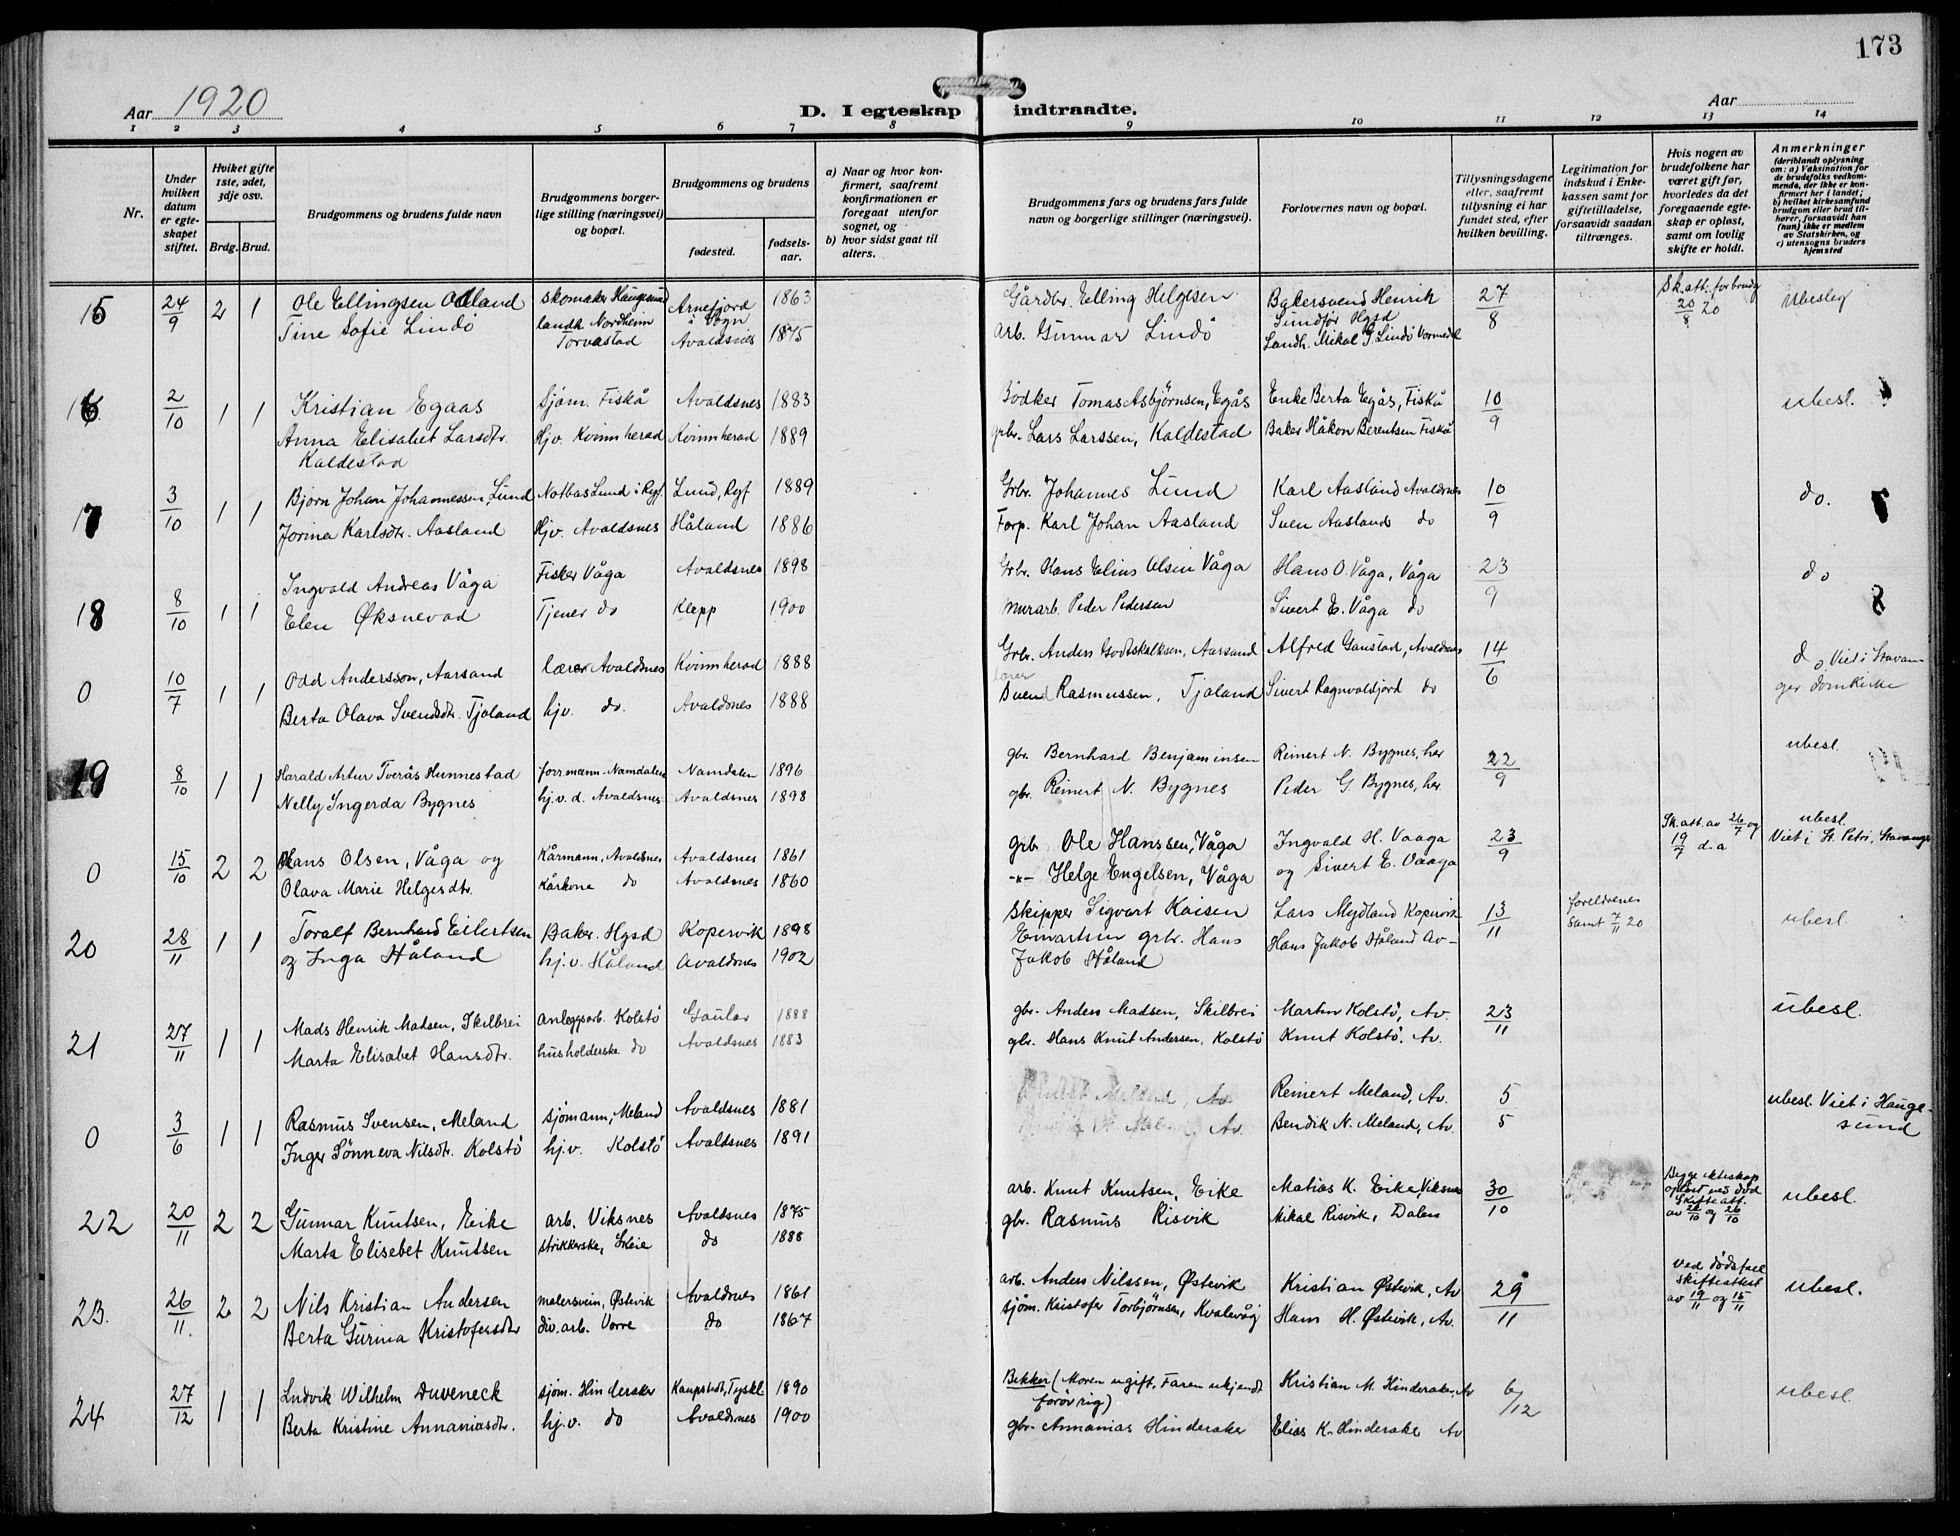 173
Aar 1920
D. I egteskap indtraadte.
Aar
1 2 3 4 5 6 7 8 9 10 11 12 13 14
Nr.
Under hvilken datum er egteskapet stiftet.
Hvilket gifte 1ste, 2det, 3dje osv.
Brdg. Brud.
Brudgommens og brudens fulde navn
Brudgommens borgerlige stilling (næringsvei) og bopæl.
Brudgommens og brudens
fødested.
fødselsaar.
a) Naar og hvor konfirmert, saafremt konfirmationen er foregaat utenfor sognet, og
b) hvor sidst gaat til alters.
Brudgommens fars og brudens fars fulde navn og borgerlige stillinger (næringsvei).
Forlovernes navn og bopæl.
Tillysningsdagene eller, saafremt tillysning ei har fundet sted, efter hvilken bevilling.
Legitimation for indskud i Enkekassen samt for giftetilladelse, forsaavidt saadan tiltrænges.
Hvis nogen av brudefolkene har været gift før, hvorledes da det foregaaende egteskap er opløst, samt om lovlig skifte er holdt.
Anmerkninger (deriblandt oplysning om: a) Vaksination for de brudefolks vedkommende, der ikke er konfirmert her i landet; b) hvilket kirkesamfund brudgom eller brud tilhører, forsaavidt han (hun) ikke er medlem av Statskirken, og c) utensogns bruders hjemsted
15 24/9 2 1 Ole Ellingsen Ådland skomaker Haugesund Arnefjord i Sogn 1863 Gårdbr. Elling Helgesen Bakersvend Henrik Sundfør Hgsd 27/8 Sk. att. for brudg 20/8 20 Ubesleg
Tine Sofie Lindö landh. Nordheim Torvastad Avaldsnes 1875 arb. Gunnar Lindö Landh. Mikal G. Lindö Vormedal
16 2/10 1 1 Kristian Egaas Sjøm. Fiskå Avaldsnes 1883 Bödker Tomas Asbjörnsen, Egås Enke Berta Egås, Fiskå 10/9 ubesl.
Anna Elisabet Larsdtr. Kaldestad Hjv. Kvinnherad Kvinnherad 1889 grbr. Lars Larssen, Kaldestad Baker Håkon Berentsen Fiskå
17 3/10 1 1 Bjorn Johan Johannessen, Lund Notbas Lund i Ryf. Lund, Ryf 1889 Grbr. Johannes Lund Karl Aasland Avaldsnes 10/9 do.
Jorina Karlsdtr. Aasland Hjv. Avaldsnes Håland 1886 Forp. Karl Johan Aasland Sven Aasland do
18 8/10 1 1 Ingvald Andreas Våga Fisker Våga Avaldsnes 1898 Grbr. Hans Elius Olsen Våga Hans O. Våga, Våga 23/9 do
Elen Øksnevad Tjener do Klepp 1900 Murarb. Peder Pedersen Sivert E. Våga do
0 10/7 1 1 Odd Andersson, Aarsand lærer Avaldsnes Kvinnherad 1888 Grbr. Anders Godtskalksen, Aarsand Alfred Gaustad, Avaldsnes 14/6 do Viet i Stavanger domkirke
Berta Olava Svendsdtr. Tjoland hjv. do. Avaldsnes 1888 lærer Svend Rasmussen, Tjoland Sivert Ragnvaldsjord do
19 8/10 1 1 Harald Artur Tverås Hunnestad forrmann. Namdalen Namdalen 1896 gbr. Bernhard Benjaminsen Reinert N. Bygnes, her 22/9 ubesl.
Nelly Ingerda Bygnes hj.v.d. Avaldsnes Avaldsnes 1898 gbr. Reinert N. Bygnes Peder G Bygnes, her
0 15/10 2 2 Hans Olsen, Våga og Kårmann, Avaldsnes Avaldsnes 1861 grb. Ole Hanssen, Våga Ingvald H. Vaaga 23/9 Sk. att. av 26/7 og 19/7 d.a ubesl. Viet i St. Petri, Stavanger
Olava Marie Helgesdtr. Kårkone do Avaldsnes 1860 -"- Helge Engelsen, Våga og Sivert E. Vaaga
20 28/11 1 1 Toralf Bernhard Eilertsen Baker. Hgsd Kopervik 1898 Skipper Sigvart Kaisen Lars Mydland Kopervik 13/11 foreldrenes samt 7/11 20 ubesl.
og Inga Håland hj.v. Håland Avaldsnes 1902 grbr. Hans Jakob Håland Hans Jakob Håland Av-
21 27/11 1 1 Mads Henrik Madsen, Skilbrei anleggsarb. Kolstö Gaular 1888 gbr. Anders Madsen, Skilbrei Martin Kolstö, Av. 23/11 ubesl.
Marta Elisabet Hansdtr. husholderske do Avaldsnes 1883 gbr. Hans Knut Andersen, Kolstö Knut Kolstö, Av.
0 3/6 1 1 Rasmus Svensen, Meland sjømann, Meland Avaldsnes 1881 Meland, Av. Reinert Meland, Av. 5/5 ubesl. Viet i Haugesund
Inger Sönneva Nilsdtr. Kolstö hj.v. Kolstö Avaldsnes 1891 Av. Bendik N. Meland, Av.
22 20/11 2 2 Gunnar Knutsen, Eike arb. Viksnes Avaldsnes 1875 arb. Knut Knutsen, Eike Matias K. Eike, Viksnes 30/10 Begge ekteskap oplöst ved död Skifteatt. av 26/10 og 26/10 ubesl.
Marta Elisebet Knutsen strikkerske, Skeie do 1888 gbr. Rasmus Risvik Mikal Risvik, Dalen
23. 26/11. 2 2 Nils Kristian Andersen malersvein, Østevik Avaldnes 1861 arb. Anders Nilssen, Østevik Kristian Østevik, Av 29/11 ved dödsfall skifteattest av 19/11 og 15/11 ubesl.
Berta Gurina Kristofersdtr div. arb. Vorre do 1867 sjöm. Kristofer Torbjörnsen, Kvalevåg Hans H. Østevik, Av.
24 27/12 1 1 Ludvik Wilhelm Duveneck sjøm. Hinderaker Kaupstedt, Tyskl. 1890 Bekker (Moren ugift. Faren ukjendt forövrig) Kristian M. Hinderaker, Av 6/12 ubesl.
Berta Kristine Annaniasdtr. hj.v. do Avaldsnes 1900 gbr. Annanias Hinderaker Elias K. Hinderaker Av